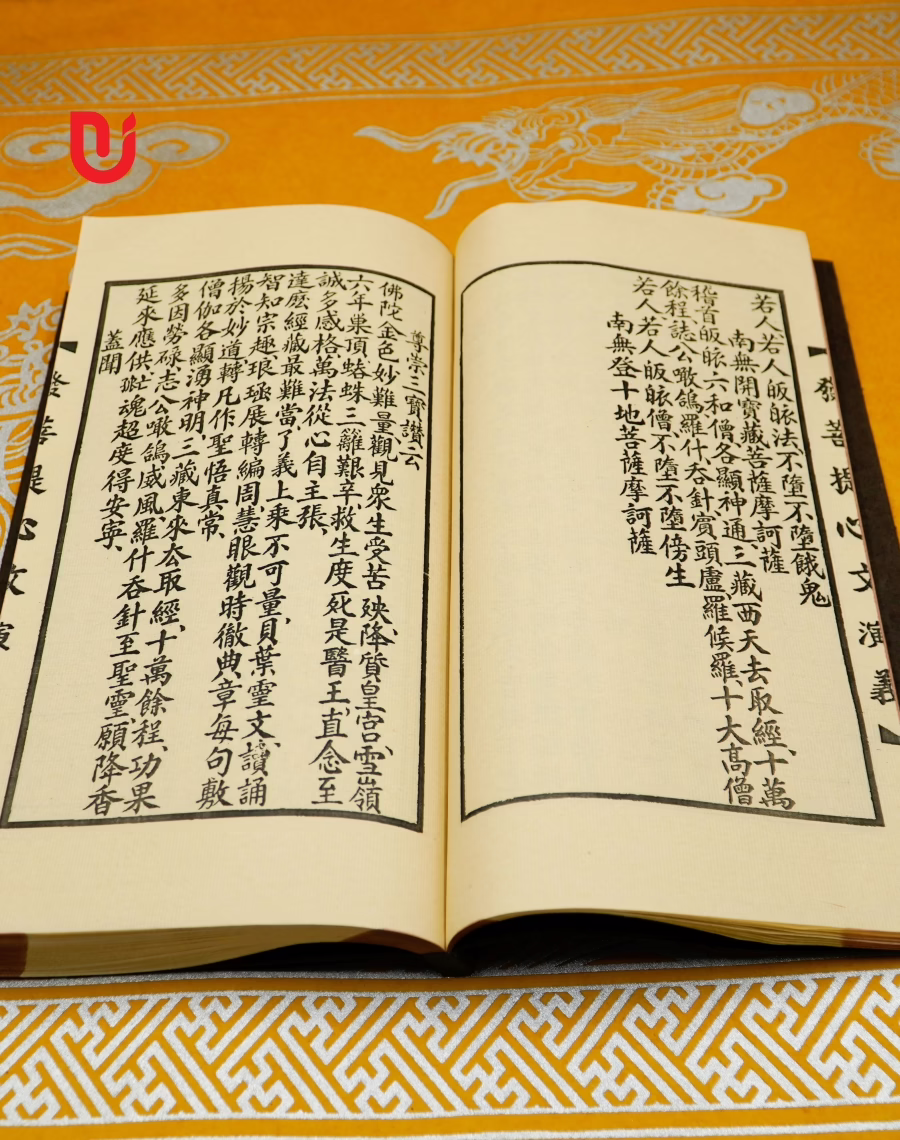 若人若人皈依法、不墮不墮餓鬼
南無開寶藏菩薩摩訶薩
稽首皈依六和僧各顯神通、三藏西天去取經、十萬
餘程、誌公噉鴿羅什吞針賓頭盧羅候羅、十大高僧
若人若人皈依僧、不墮不墮傍生
南無登十地菩薩摩訶薩
尊崇三寶讚云
佛陀金色妙難量觀見眾生受苦殃、降質皇宮、雪嶺
六年巢頂、蜘蛛三籬艱辛、救生度死是醫王、直念至
誠多感格、萬法從心自主張、
達麽經藏最難當了義上乘不可量、貝葉靈文、讀誦
智知宗趣、琅函展轉編周、慧眼觀時徹典、章每句敷
揚於妙道轉凡作聖悟真常、
僧伽各顯湧神明、三藏東來去取經、十萬餘程、功果
多因勞碌、志公噉鴿、威風、羅什吞針至聖靈、願降香
延來應供、亡魂超度得安寧、
蓋聞
發菩提心文演義
發菩提心文演